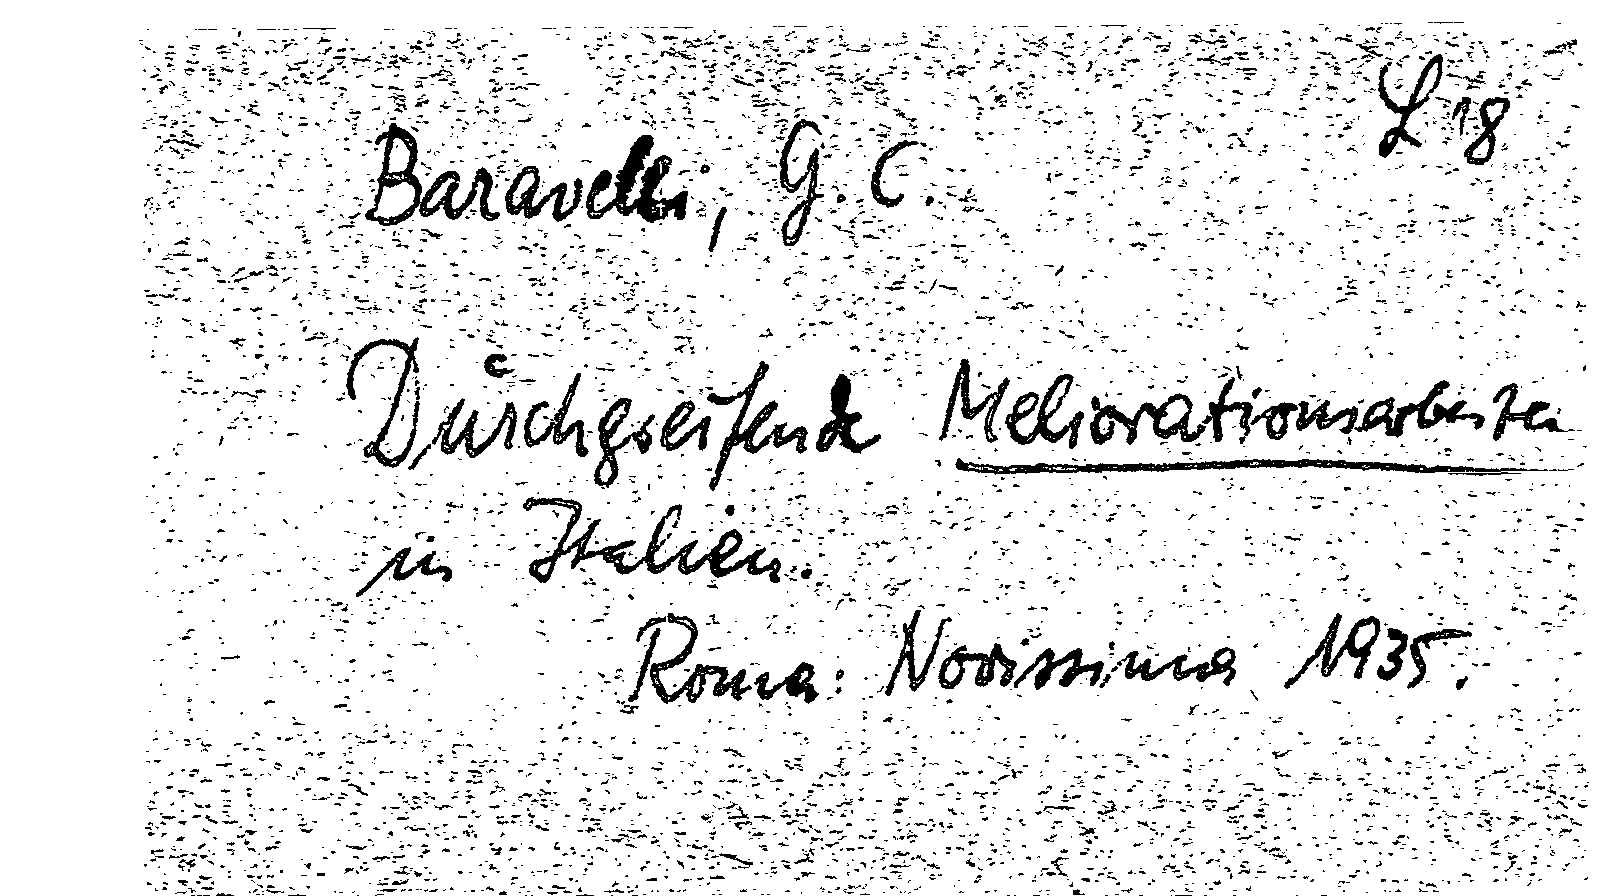 L 18
Baravelli, G. C.
Durchgreifende Meliorationsarbeiten
in Italien.
Roma: Novissima 1935.